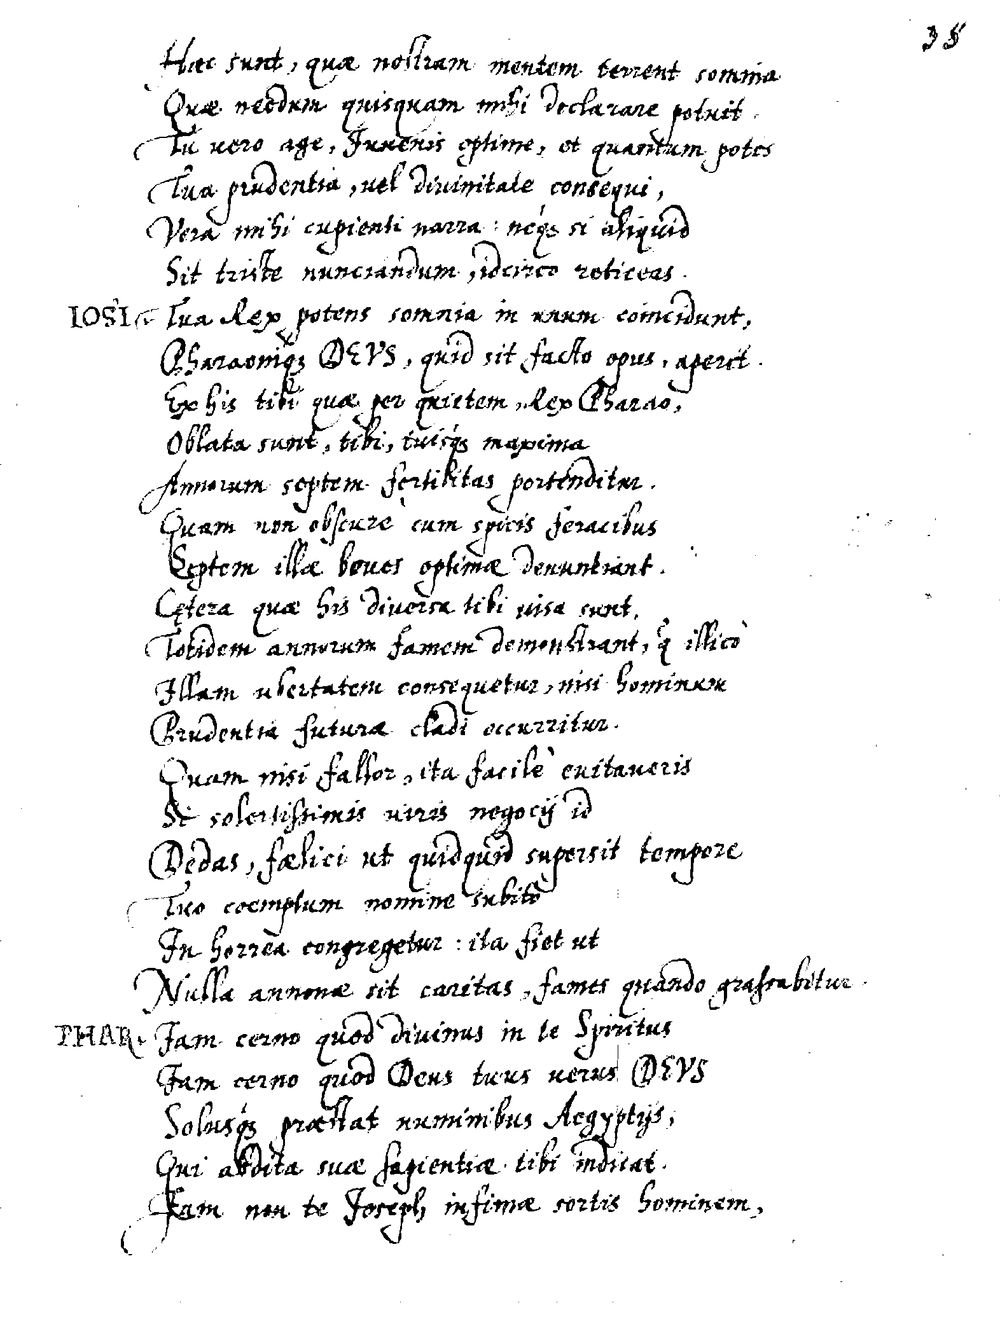 35
Haec sunt, quæ nostram mentem terrent somnia
Quæ necdum quisquam mihi declarare potuit.
Tu uero age, Juuenis optime, et quantum potes
Tua prudentia, uel diuinitate consequi,
Vera mihi cupienti narra: neq́; si aliquid
Sit triste nunciandum, idcirco reticeas.
IOSI. Tua Rex potens somnia in unum coincidunt,
Pharaoniq́; DEVS, quid sit facto opus, aperit.
Ex his tibi quæ per quietem, Rex Pharao,
Oblata sunt, tibi, tuisq́; maxima
Annorum septem fertilitas portenditur.
Quam non obscurè cum spicis feracibus
Septem illæ boues optimæ denuntiant.
Cętera quæ his diuersa tibi uisa sunt,
Totidem annorum famem demonstrant, q̃ illicò
Illam ubertatem consequetur, nisi hominum
Prudentia futuræ cladi occurritur.
Quam nisi fallor, ita facilè euitaueris
Si solertissimis uiris negocij id
Dedas, fælici ut quidquid supersit tempore
Tuo coemptum nomine subitò
In horrea congregetur: ita fiet ut
Nulla annonæ sit caritas, fames quando grassabitur.
PHAR. Jam cerno quod diuinus in te Spiritus
Jam cerno quod Deus tuus uerus DEVS
Solusq́; præstat numinibus Aegyptijs,
Qui abdita suæ sapientiæ tibi indicat.
Jam non te Joseph infimæ sortis hominem,